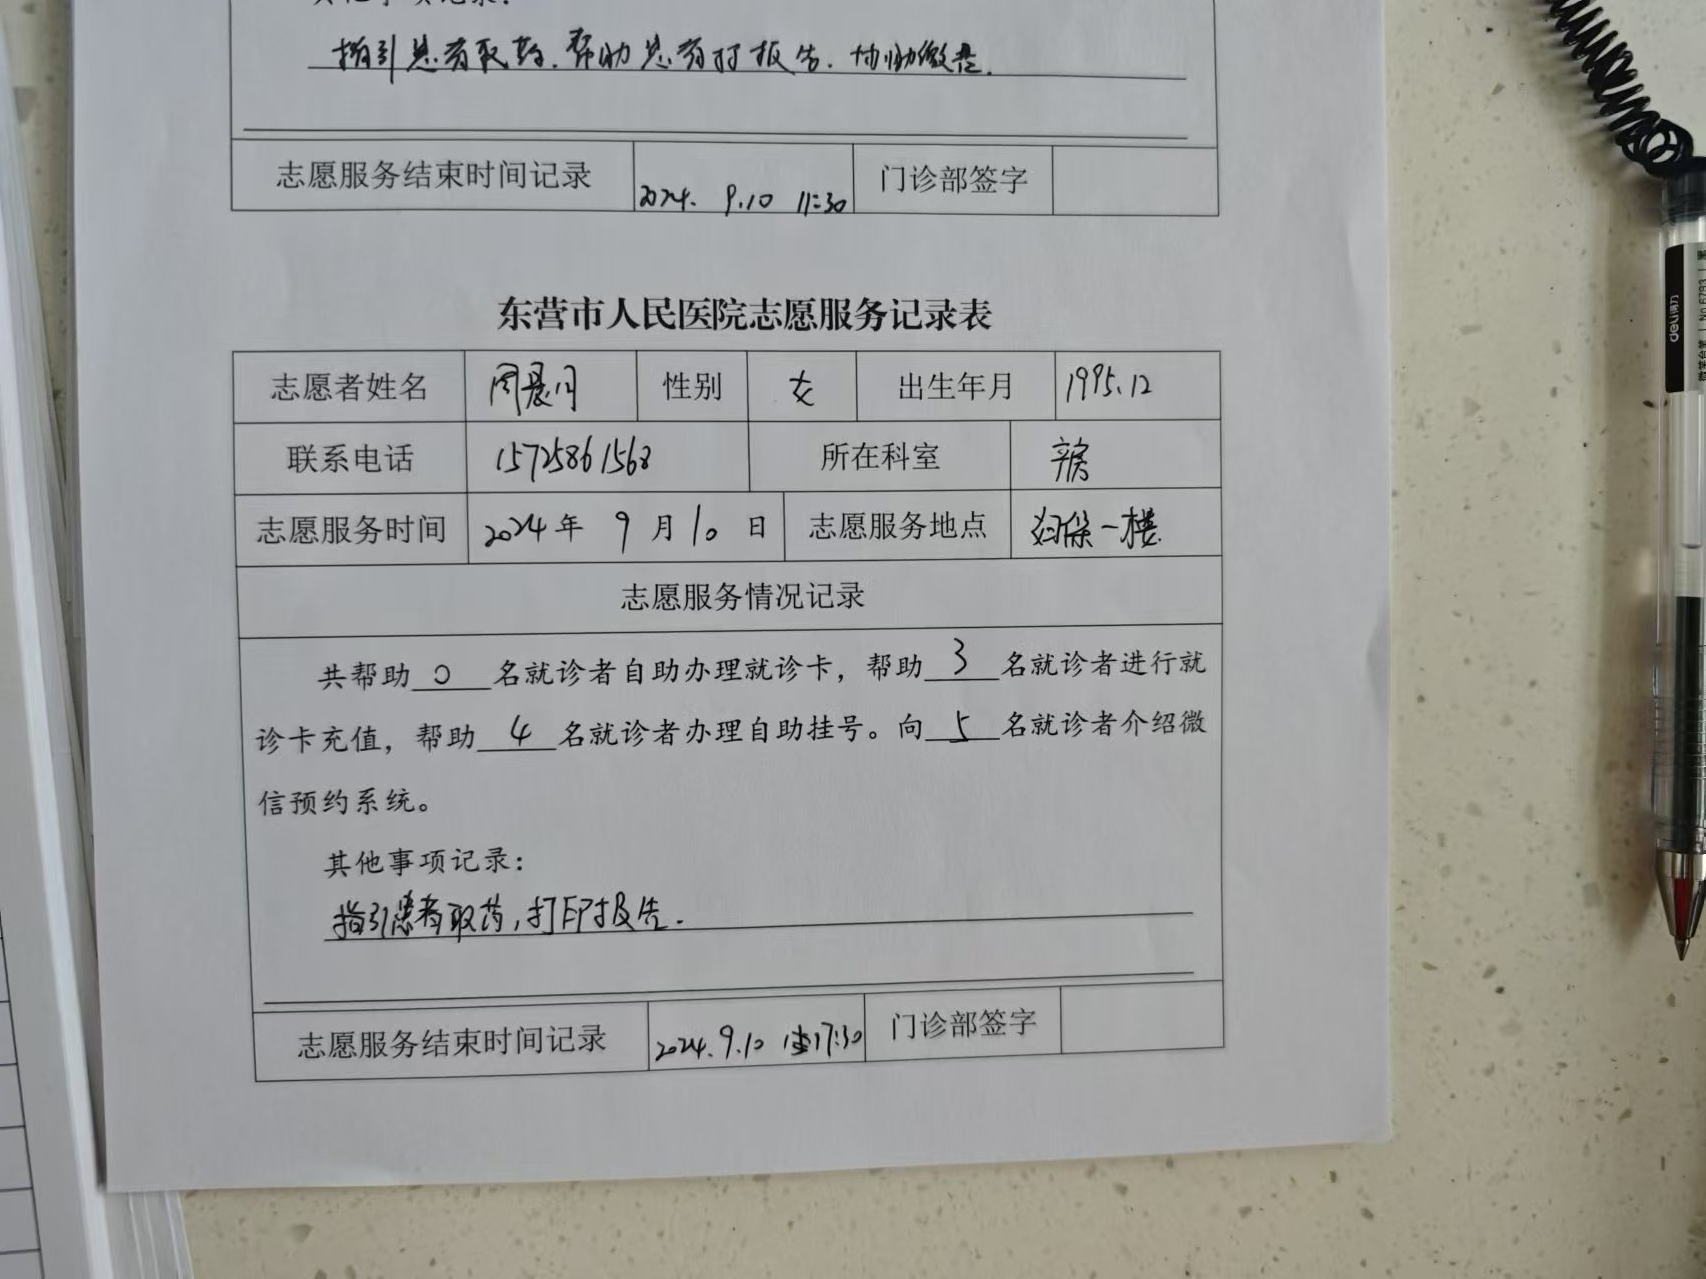 其他事项记录：
指引患者取药、帮助患者打报告、协助缴费.
志愿服务结束时间记录 2024. 9.10 11:30 门诊部签字
东营市人民医院志愿服务记录表
志愿者姓名 周晨月 性别 女 出生年月 1995.12
联系电话 15725861568 所在科室 产房
志愿服务时间 2024年 9月10日 志愿服务地点 妇保一楼
志愿服务情况记录
共帮助 0 名就诊者自助办理就诊卡，帮助 3 名就诊者进行就
诊卡充值，帮助 4 名就诊者办理自助挂号。向 5 名就诊者介绍微
信预约系统。
其他事项记录：
指引患者取药，打印报告.
志愿服务结束时间记录 2024.9.10 17:30 门诊部签字
deli得力